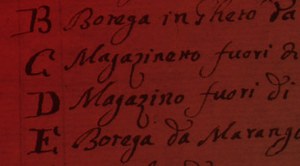 B Botega in Gheto da
C Magazineto fuori di
D Magazino fuori di
E Botega da Marango